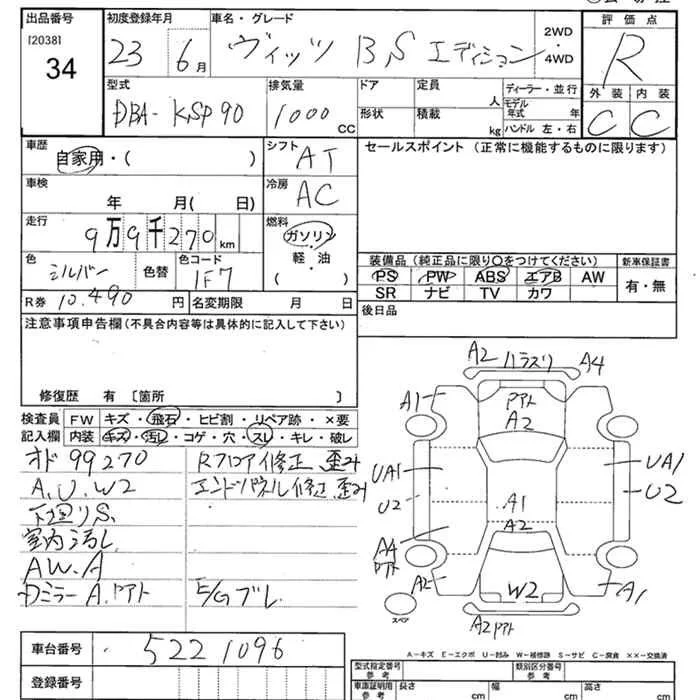 出品番号
[2038]
34
初度登録年月
23 6月
車名・グレード
ヴィッツ B,S エディション
2WD
・
4WD
評価点
R
外装 内装
C C
型式
DBA-KSP90
排気量
1000 CC
ドア
形状
定員 人
積載 kg
ディーラー・並行
モデル年式 年
ハンドル 左・右
車歴
自家用・( )
シフト
AT
セールスポイント (正常に機能するものに限ります)
車検
年 月( 日)
冷房
AC
走行
9万9千270km
燃料
ガソリン
・
軽・油
・
( )
色
シルバー
色替
色コード
1F7
R券 10,490 円
名変期限 月 日
装備品 (純正品に限り○をつけてください)
新車保証書
PS PW ABS エアB AW
SR ナビ TV カワ
有・無
後日品
注意事項申告欄(不具合内容等は具体的に記入して下さい)
修復歴 有〔箇所 〕
検査員
記入欄
FW キズ・飛石・ヒビ割・リペア跡・×要
内装 キズ・汚レ・コゲ・穴・スレ・キレ・破レ
オド 99270
A.U.W2
下廻りS
室内汚レ
AW.A
Dミラー A.アト
Rフロア修正 歪み
エンドパネル修正 歪み
E/Gブレ
A2 ハラズリ A4
A1
アト
A2
UA1
U2
UA1
U2
A1
A2
A4
アト
A2
W2
A1
スペア
A2アト
A-キズ E-エクボ U-凹み W-補修跡 S-サビ C-腐食 ××-交換済
車台番号
5221096
登録番号
型式指定番号
参考
類別区分番号
参考
車庫証明用
参考
長さ cm
幅 cm
高さ cm